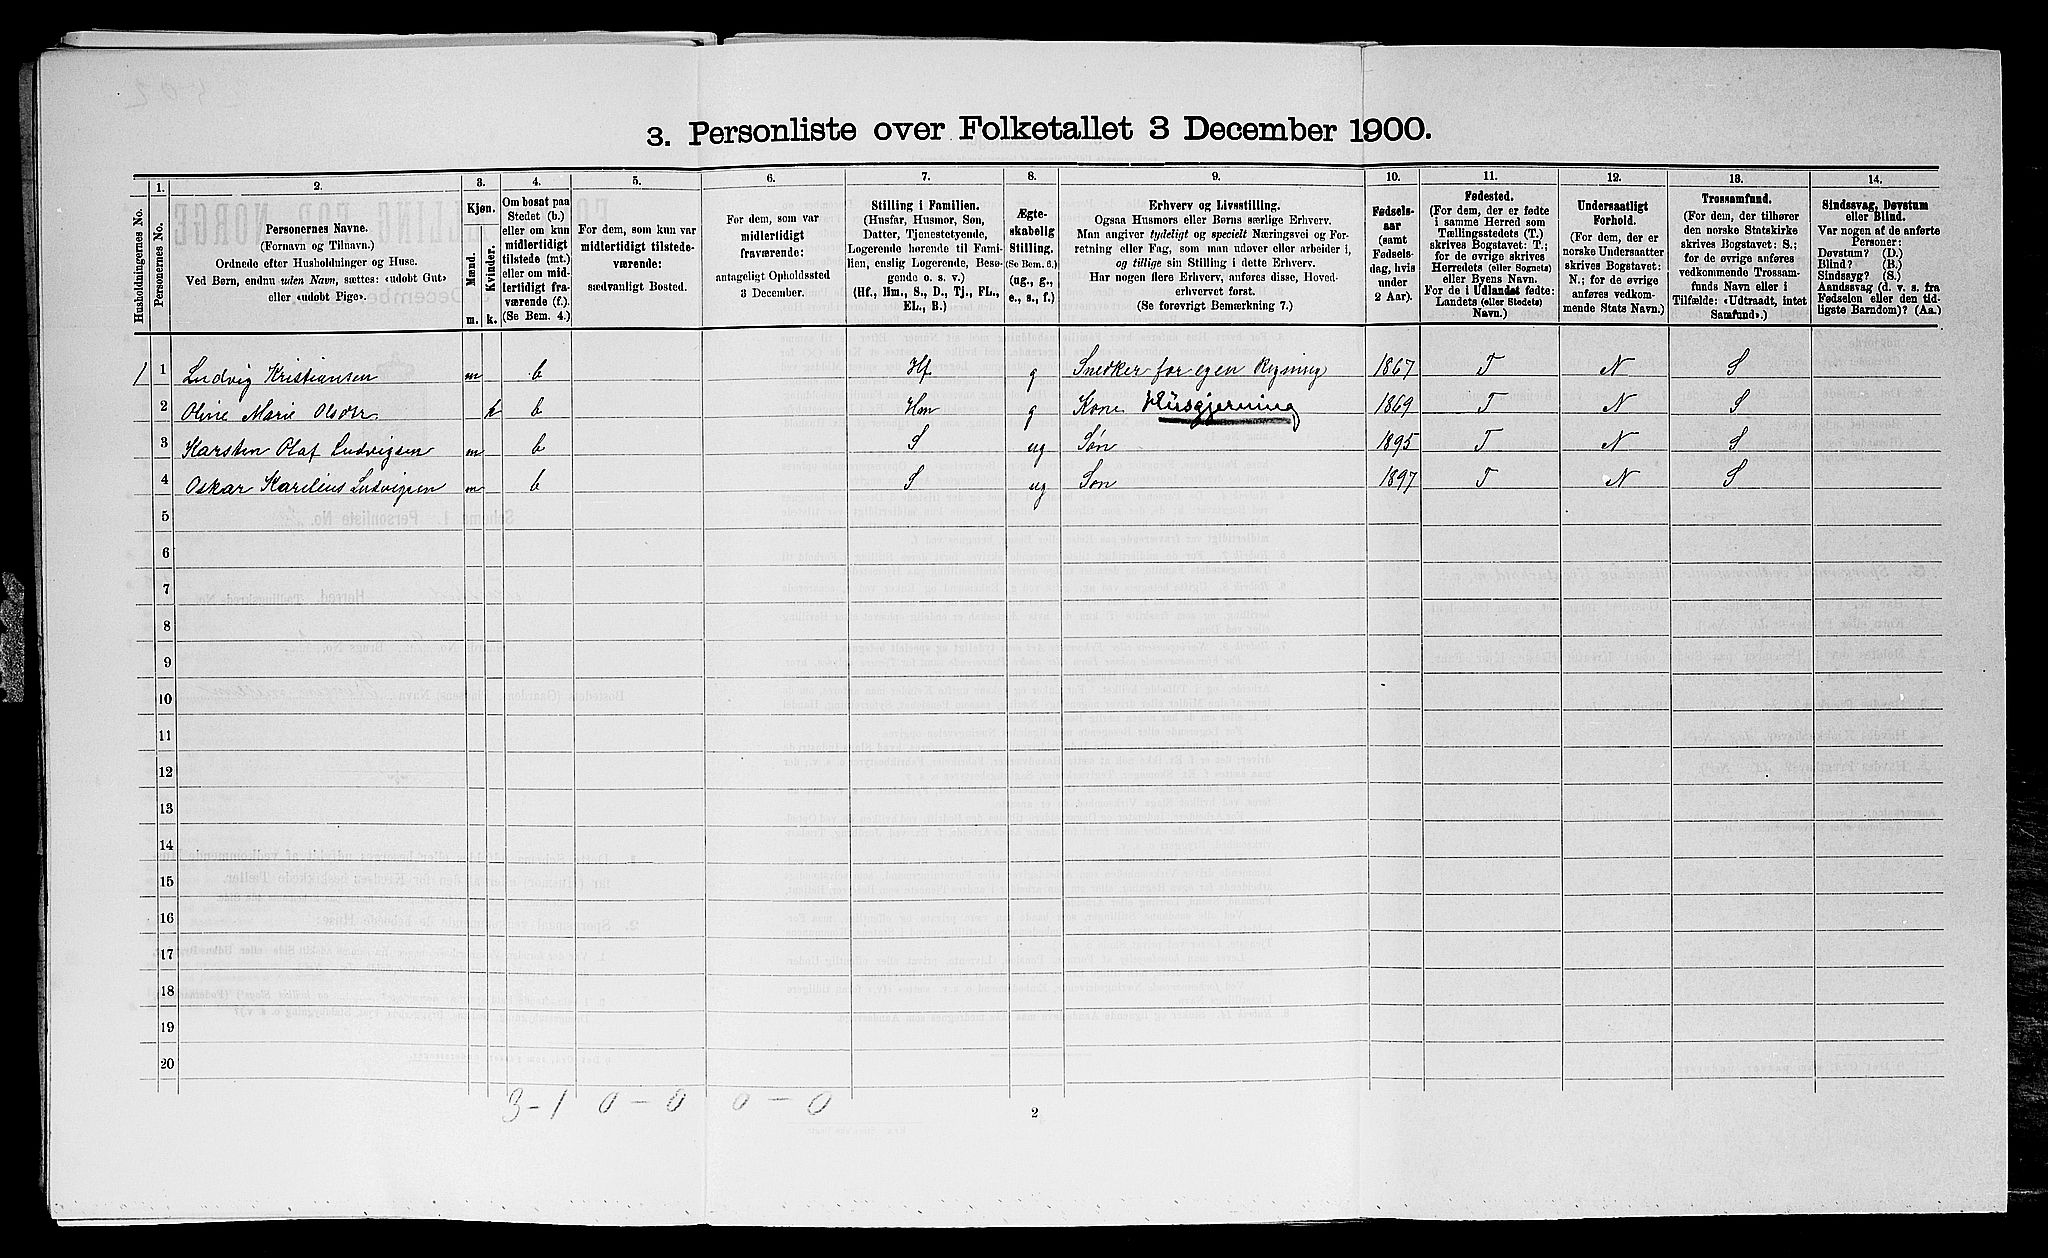 3. Personliste over Folketallet 3 December 1900.
1. 2. 3. 4. 5. 6. 7. 8. 9. 10. 11. 12. 13. 14.
Husholdningernes No.
Personernes No.
Personernes Navne.
(Fornavn og Tilnavn.)
Ordnede efter Husholdninger og Huse.
Ved Børn, endnu uden Navn, sættes: «udøbt Gut»
eller «udøbt Pige».
Kjøn.
Mænd.
Kvinder.
m. k.
Om bosat paa
Stedet (b.)
eller om kun
midlertidigt
tilstede (mt.)
eller om mid-
lertidigt fra-
værende (f.).
(Se Bem. 4.)
For dem, som kun var
midlertidigt tilstede-
værende:
sædvanligt Bosted.
For dem, som var
midlertidigt
fraværende:
antageligt Opholdssted
3 December.
Stilling i Familien.
(Husfar, Husmor, Søn,
Datter, Tjenestetyende,
Logerende hørende til Fami-
lien, enslig Logerende, Besø-
gende o. s. v.)
(Hf., Hm., S., D., Tj., FL.,
EL., B.)
Ægte-
skabelig
Stilling.
(Se Bem. 6.)
(ug., g.,
e., s., f.)
Erhverv og Livsstilling.
Ogsaa Husmors eller Børns særlige Erhverv.
Man angiver tydeligt og specielt Næringsvei og For-
retning eller Fag, som man udøver eller arbeider i,
og tillige sin Stilling i dette Erhverv.
Har nogen flere Erhverv, anføres disse, Hoved-
erhvervet først.
(Se forøvrigt Bemærkning 7.)
Fødsels-
aar
(samt
Fødsels-
dag, hvis
under
2 Aar).
Fødested.
(For dem, der er fødte
i samme Herred som
Tællingsstedets (T.)
skrives Bogstavet: T.;
for de øvrige skrives
Herredets (eller Sognets)
eller Byens Navn.
For de i Udlandet fødte:
Landets (eller Stedets)
Navn.)
Undersaatligt
Forhold.
(For dem, der er
norske Undersaatter
skrives Bogstavet:
N.; for de øvrige
anføres vedkom-
mende Stats Navn.)
Trossamfund.
(For dem, der tilhører
den norske Statskirke
skrives Bogstavet: S.;
for de øvrige anføres
vedkommende Trossam-
funds Navn eller i
Tilfælde: «Udtraadt, intet
Samfund».)
Sindssvag, Døvstum
eller Blind.
Var nogen af de anførte
Personer:
Døvstum? (D.)
Blind? (B.)
Sindssyg? (S.)
Aandssvag (d. v. s. fra
Fødselen eller den tid-
ligste Barndom)? (Aa.)
1 1 Ludvig Kristiansen m b Hf g Snedker for egen Regning 1867 T N S
2 Oline Marie Olsdtr k b Hm g Kone Husgjerning 1869 T N S
3 Karsten Olaf Ludvigsen m b S ug Søn 1895 T N S
4 Oskar Karelius Ludvigsen m b S ug Søn 1897 T N S
5
6
7
8
9
10
11
12
13
14
15
16
17
18
19
20
3-1 0-0 0-0
2